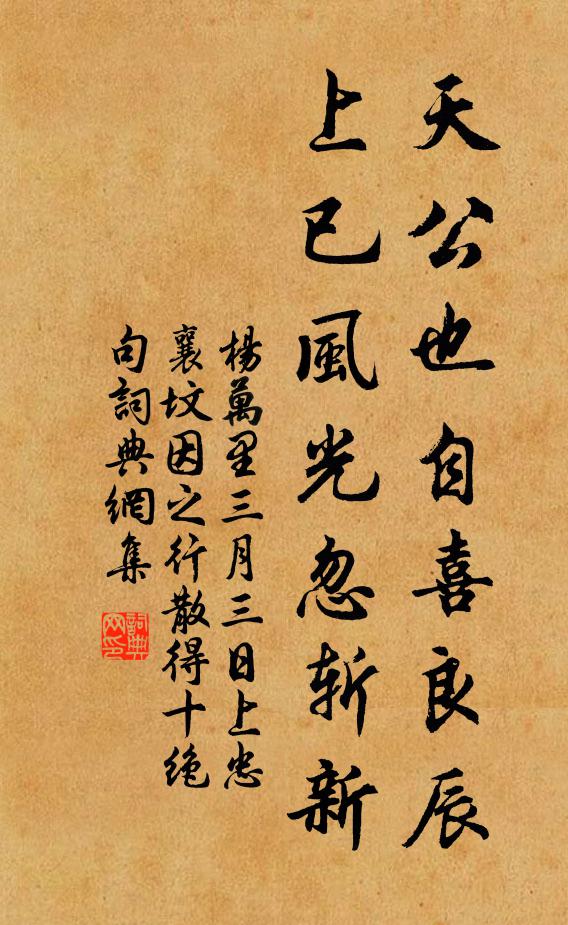 天公也自喜良辰
上巳風光忽斬新
楊萬里三月三日上忠
襄坟因之行散得十绝
句詞典網集
詞典
网印